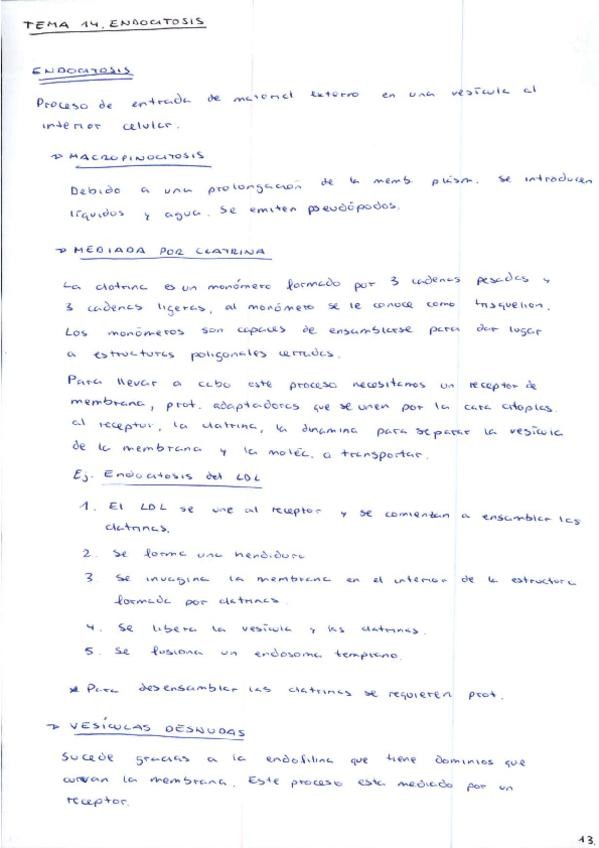 TEMA 14. ENDOCITOSIS
ENDOCITOSIS
Proceso de entrada de material externo en una vesícula al
interior celular.
→ MACROPINOCITOSIS
Debido a una prolongación de la memb. plásm. se introducen
líquidos y agua. Se emiten pseudópodos.
→ MEDIADA POR CLATRINA
La clatrina es un monómero formado por 3 cadenas pesadas y
3 cadenas ligeras, al monómero se le conoce como trisquelion.
Los monómeros son capaces de ensamblarse para dar lugar
a estructuras poligonales cerradas.
Para llevar a cabo este proceso necesitamos un receptor de
membrana, prot. adaptadoras que se unen por la cara citoplas.
al receptor, la clatrina, la dinamina para separar la vesícula
de la membrana y la moléc. a transportar.
Ej. Endocitosis del LDL
1. El LDL se une al receptor y se comienzan a ensamblar las
clatrinas.
2. Se forma una hendidura
3. Se invagina la membrana en el interior de la estructura
formada por clatrinas.
4. Se libera la vesícula y las clatrinas.
5. Se fusiona un endosoma temprano.
* Para desensamblar las clatrinas se requieren prot.
→ VESÍCULAS DESNUDAS
Sucede gracias a la endofilina que tiene dominios que
curvan la membrana. Este proceso esta mediado por un
receptor.
13.